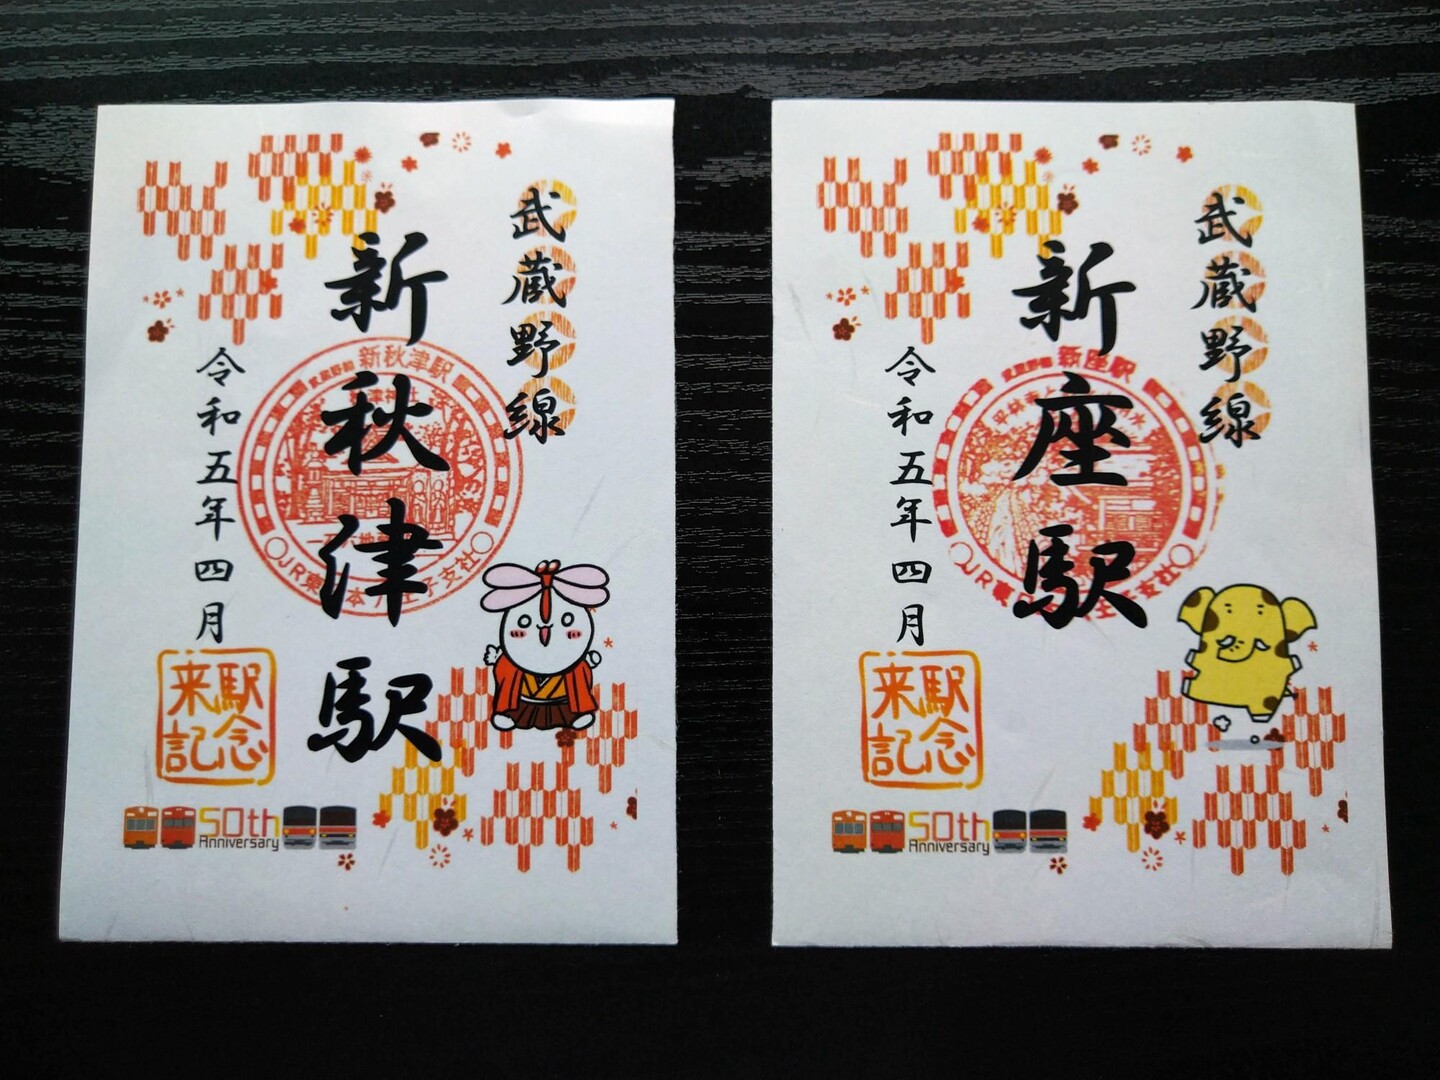 武蔵野線
新秋津駅
令和五年四月
武蔵野線 新秋津駅
JR東日本八王子支社
駅念
来記
50th
Anniversary
武蔵野線
新座駅
令和五年四月
武蔵野線 新座駅
JR東日本八王子支社
駅念
来記
50th
Anniversary